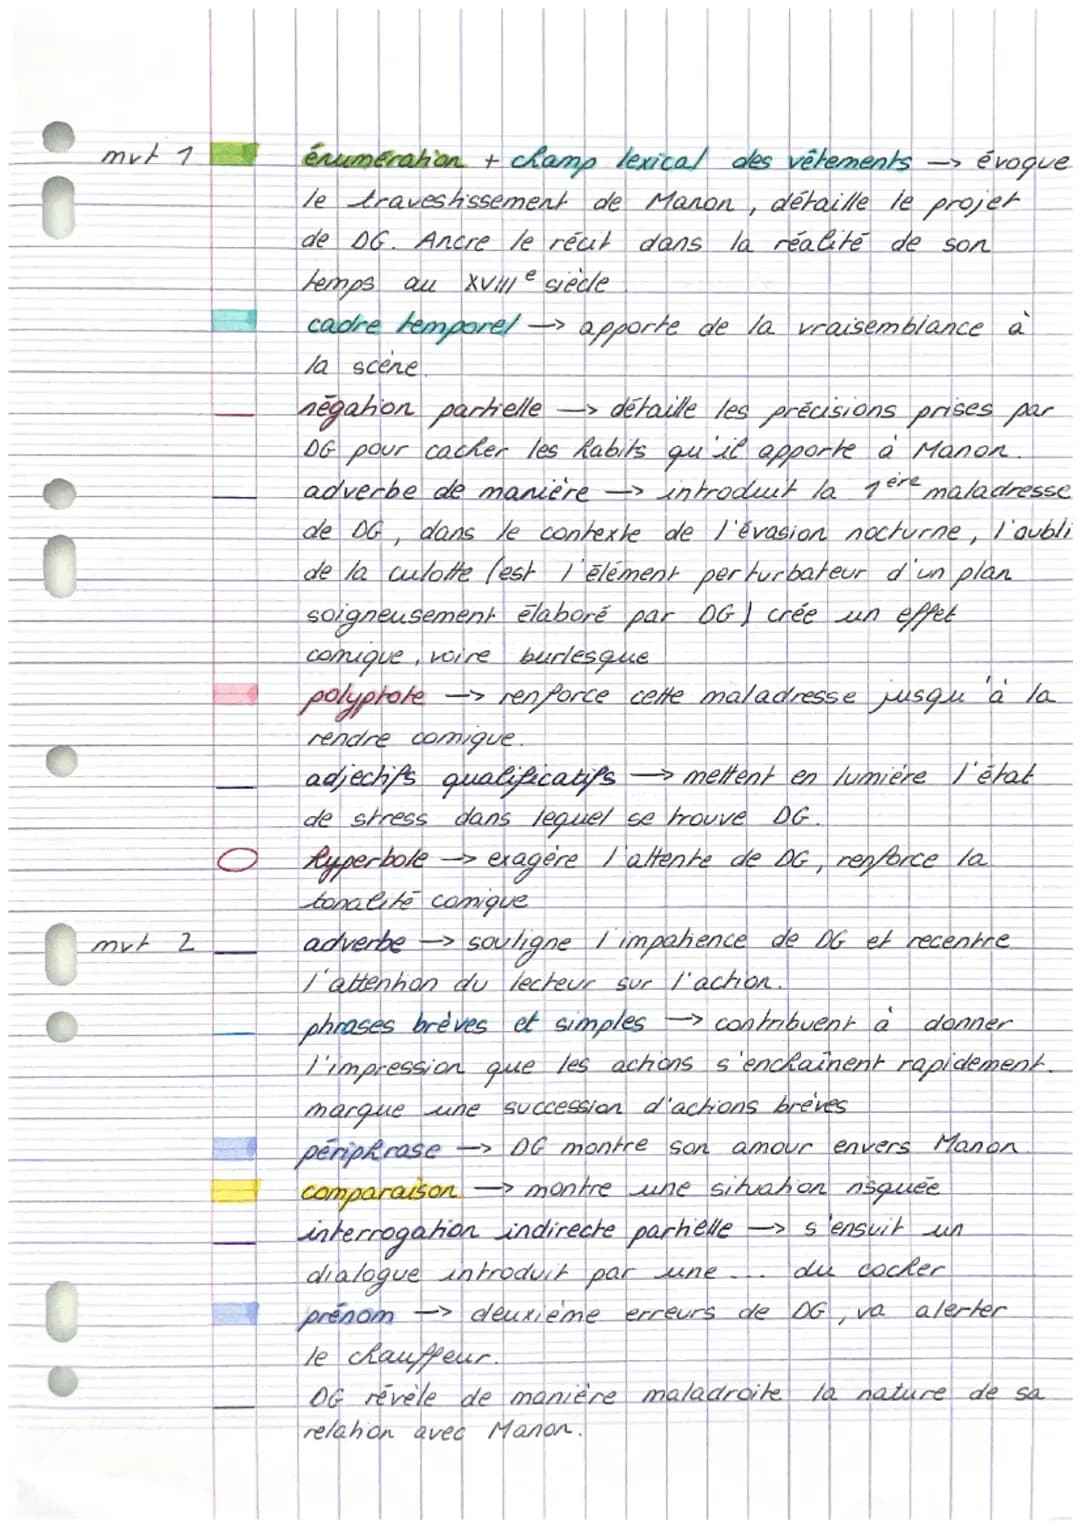 mvt 1 énumération + champ lexical des vêtements → évoque
le travestissement de Manon, détaille le projet
de DG. Ancre le récit dans la réalité de son
temps au XVIIIe siècle.
cadre temporel → apporte de la vraisemblance à
la scène.
négation partielle → détaille les précisions prises par
DG pour cacher les habits qu'il apporte à Manon.
adverbe de manière → introduit la 1ère maladresse
de DG, dans le contexte de l'évasion nocturne, l'oubli
de la culotte (est l'élément perturbateur d'un plan
soigneusement élaboré par DG) crée un effet
comique, voire burlesque
polyptote → renforce cette maladresse jusqu'à la
rendre comique.
adjectifs qualificatifs → mettent en lumière l'état
de stress dans lequel se trouve DG.
hyperbole → exagère l'attente de DG, renforce la
tonalité comique
mvt 2 adverbe → souligne l'impatience de DG et recentre
l'attention du lecteur sur l'action.
phrases brèves et simples → contribuent à donner
l'impression que les actions s'enchaînent rapidement.
marque une succession d'actions brèves
périphrase → DG montre son amour envers Manon.
comparaison → montre une situation risquée
interrogation indirecte partielle → s'ensuit un
dialogue introduit par une ... du cocher
prénom → deuxième erreurs de DG, va alerter
le chauffeur.
DG révèle de manière maladroite la nature de sa
relation avec Manon.